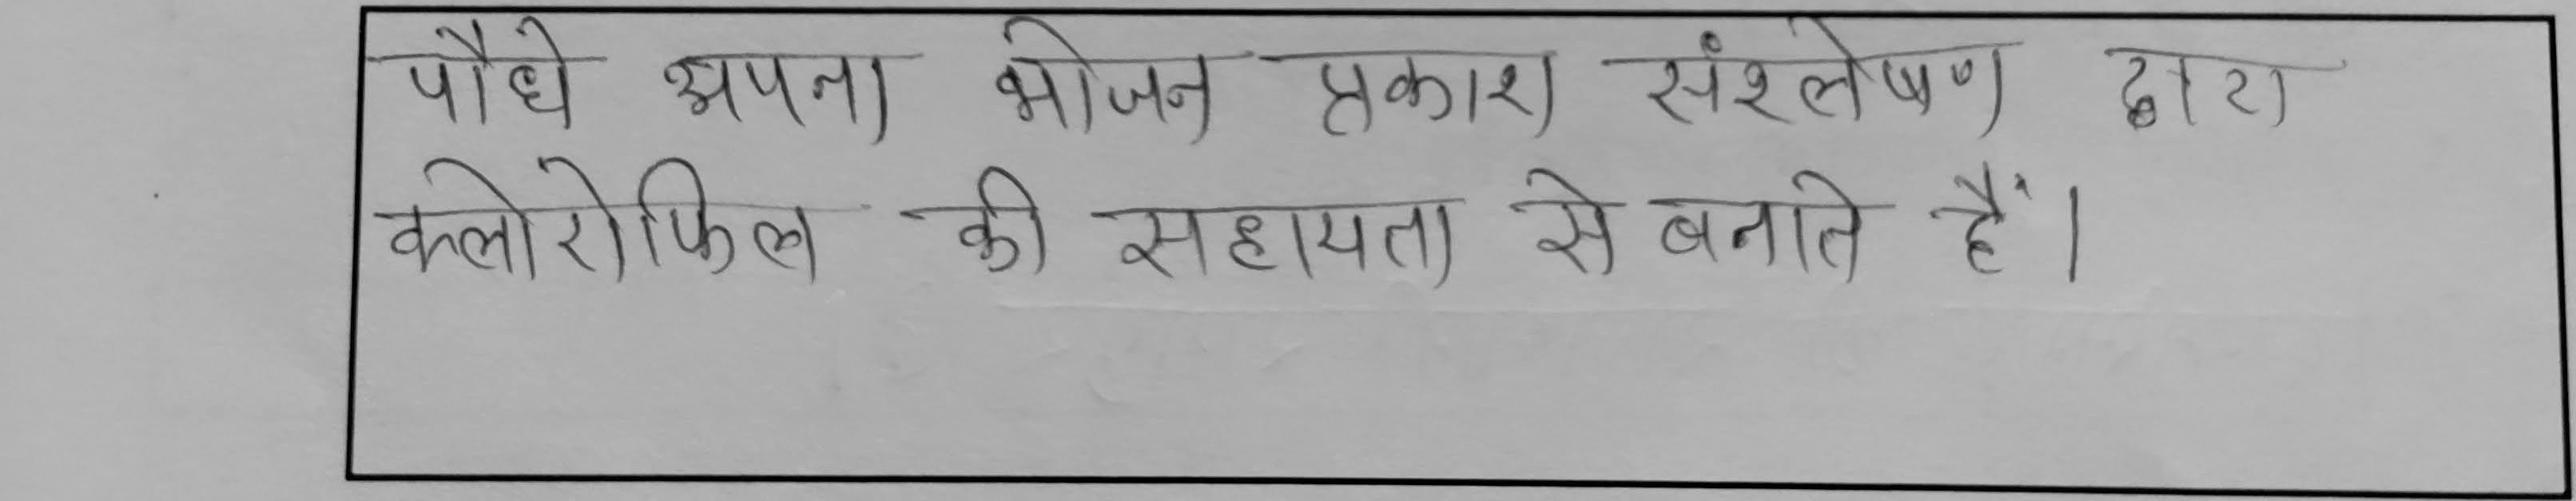 पौधे अपना भोजन प्रकाश संश्लेषण द्वारा
क्लोरोफिल की सहायता से बनाते हैं।